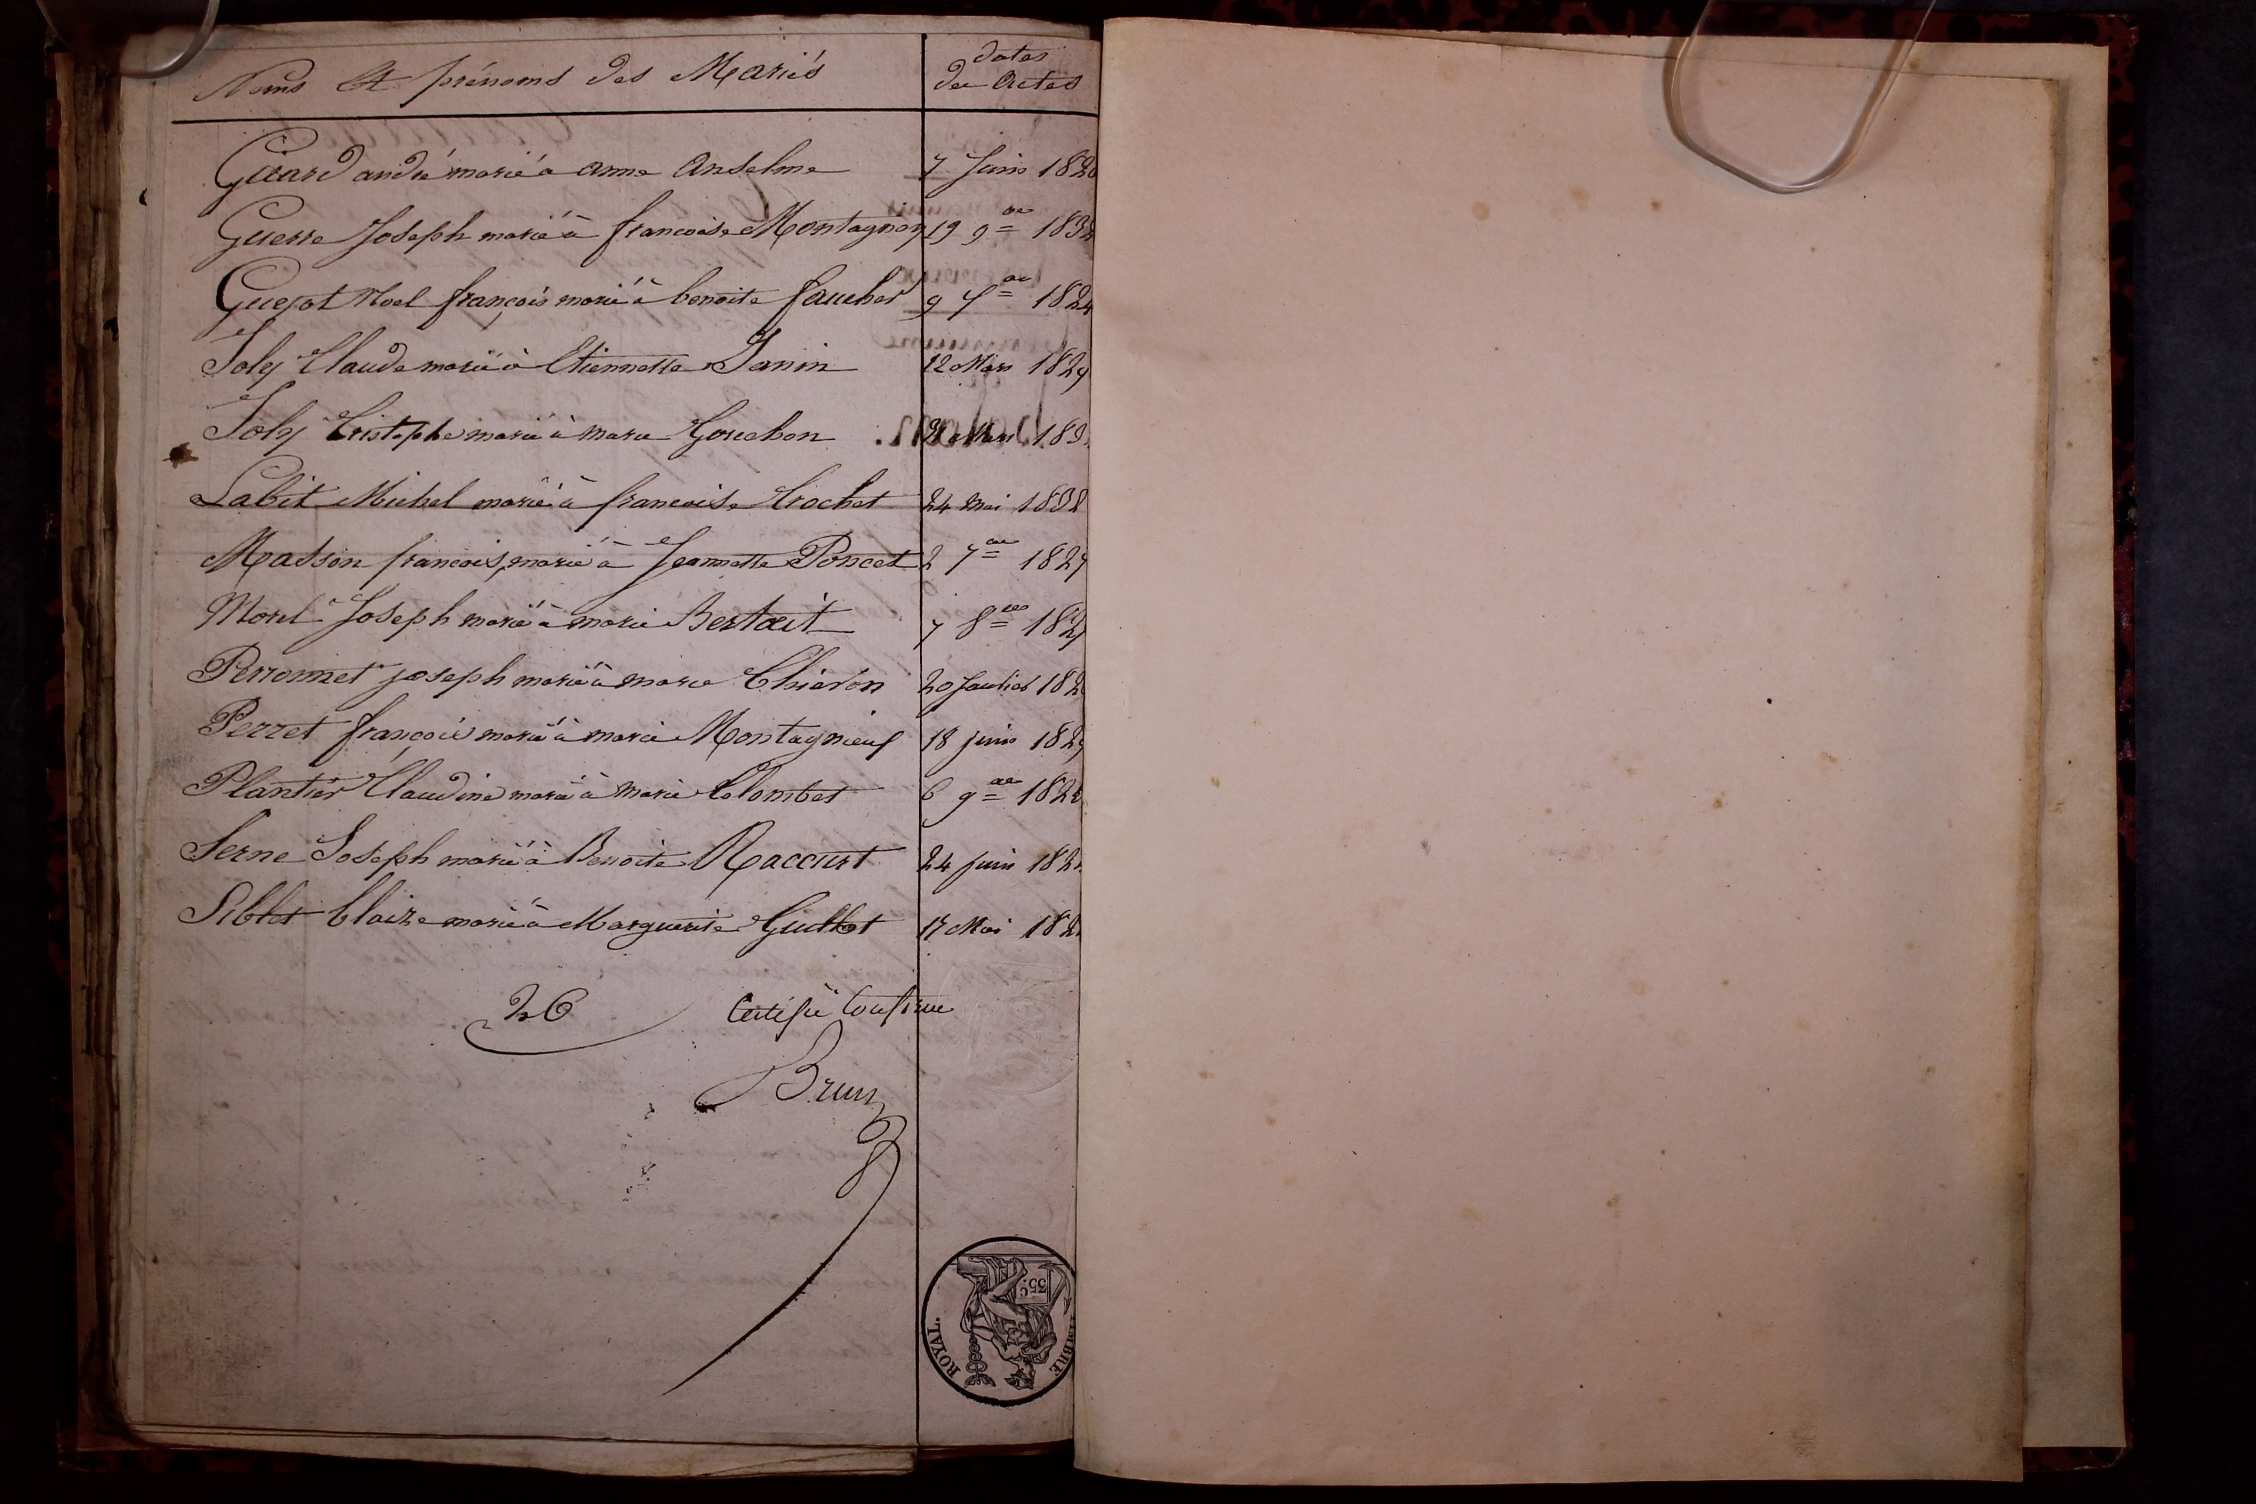 Noms Et prénoms des Mariés
dates
des Actes
Girard andré marié à anne anselme 7 Juin 182
Guerre Joseph marié à francoise Montagnon 19 9bre 183
Guyot Noel françois marié à benoite faucher 9 7bre 182
Joly Claude marié à Etiennette Janin 12 Mars 1829
Joly Cristophe marié à marie Gouchon Mars 183
Labit Michel marié à francoise Crochet 24 mai 1832
Masson francois marié à Jeannette Poncet 2 7bre 1829
Morel Joseph marié à marie Bertait 7 8bre 1829
Perronnet joseph marié à marie Chieron 20 Janvier 182
Perret françois marié à marie Montagnieux 18 juin 1829
Plantier Claudine marié à marie Colombet 6 9bre 182
Serne Joseph marié à Benoite Raccurt 24 juin 182
Siblet Claire marié à Marguerite Guillot 17 Mai 182
26 Certifié Conforme
Brun
35 c
ROYAL
TIMBRE